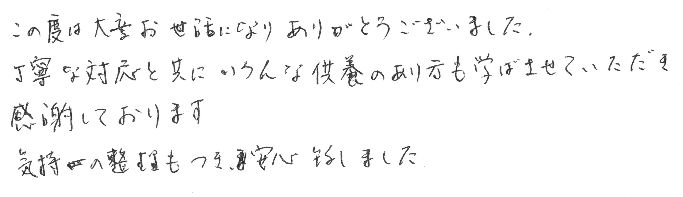 この度は大変お世話になりありがとうございました.
丁寧な対応と共にいろんな供養のあり方も学ばせていただき
感謝しております
気持の整理もつき、安心致しました